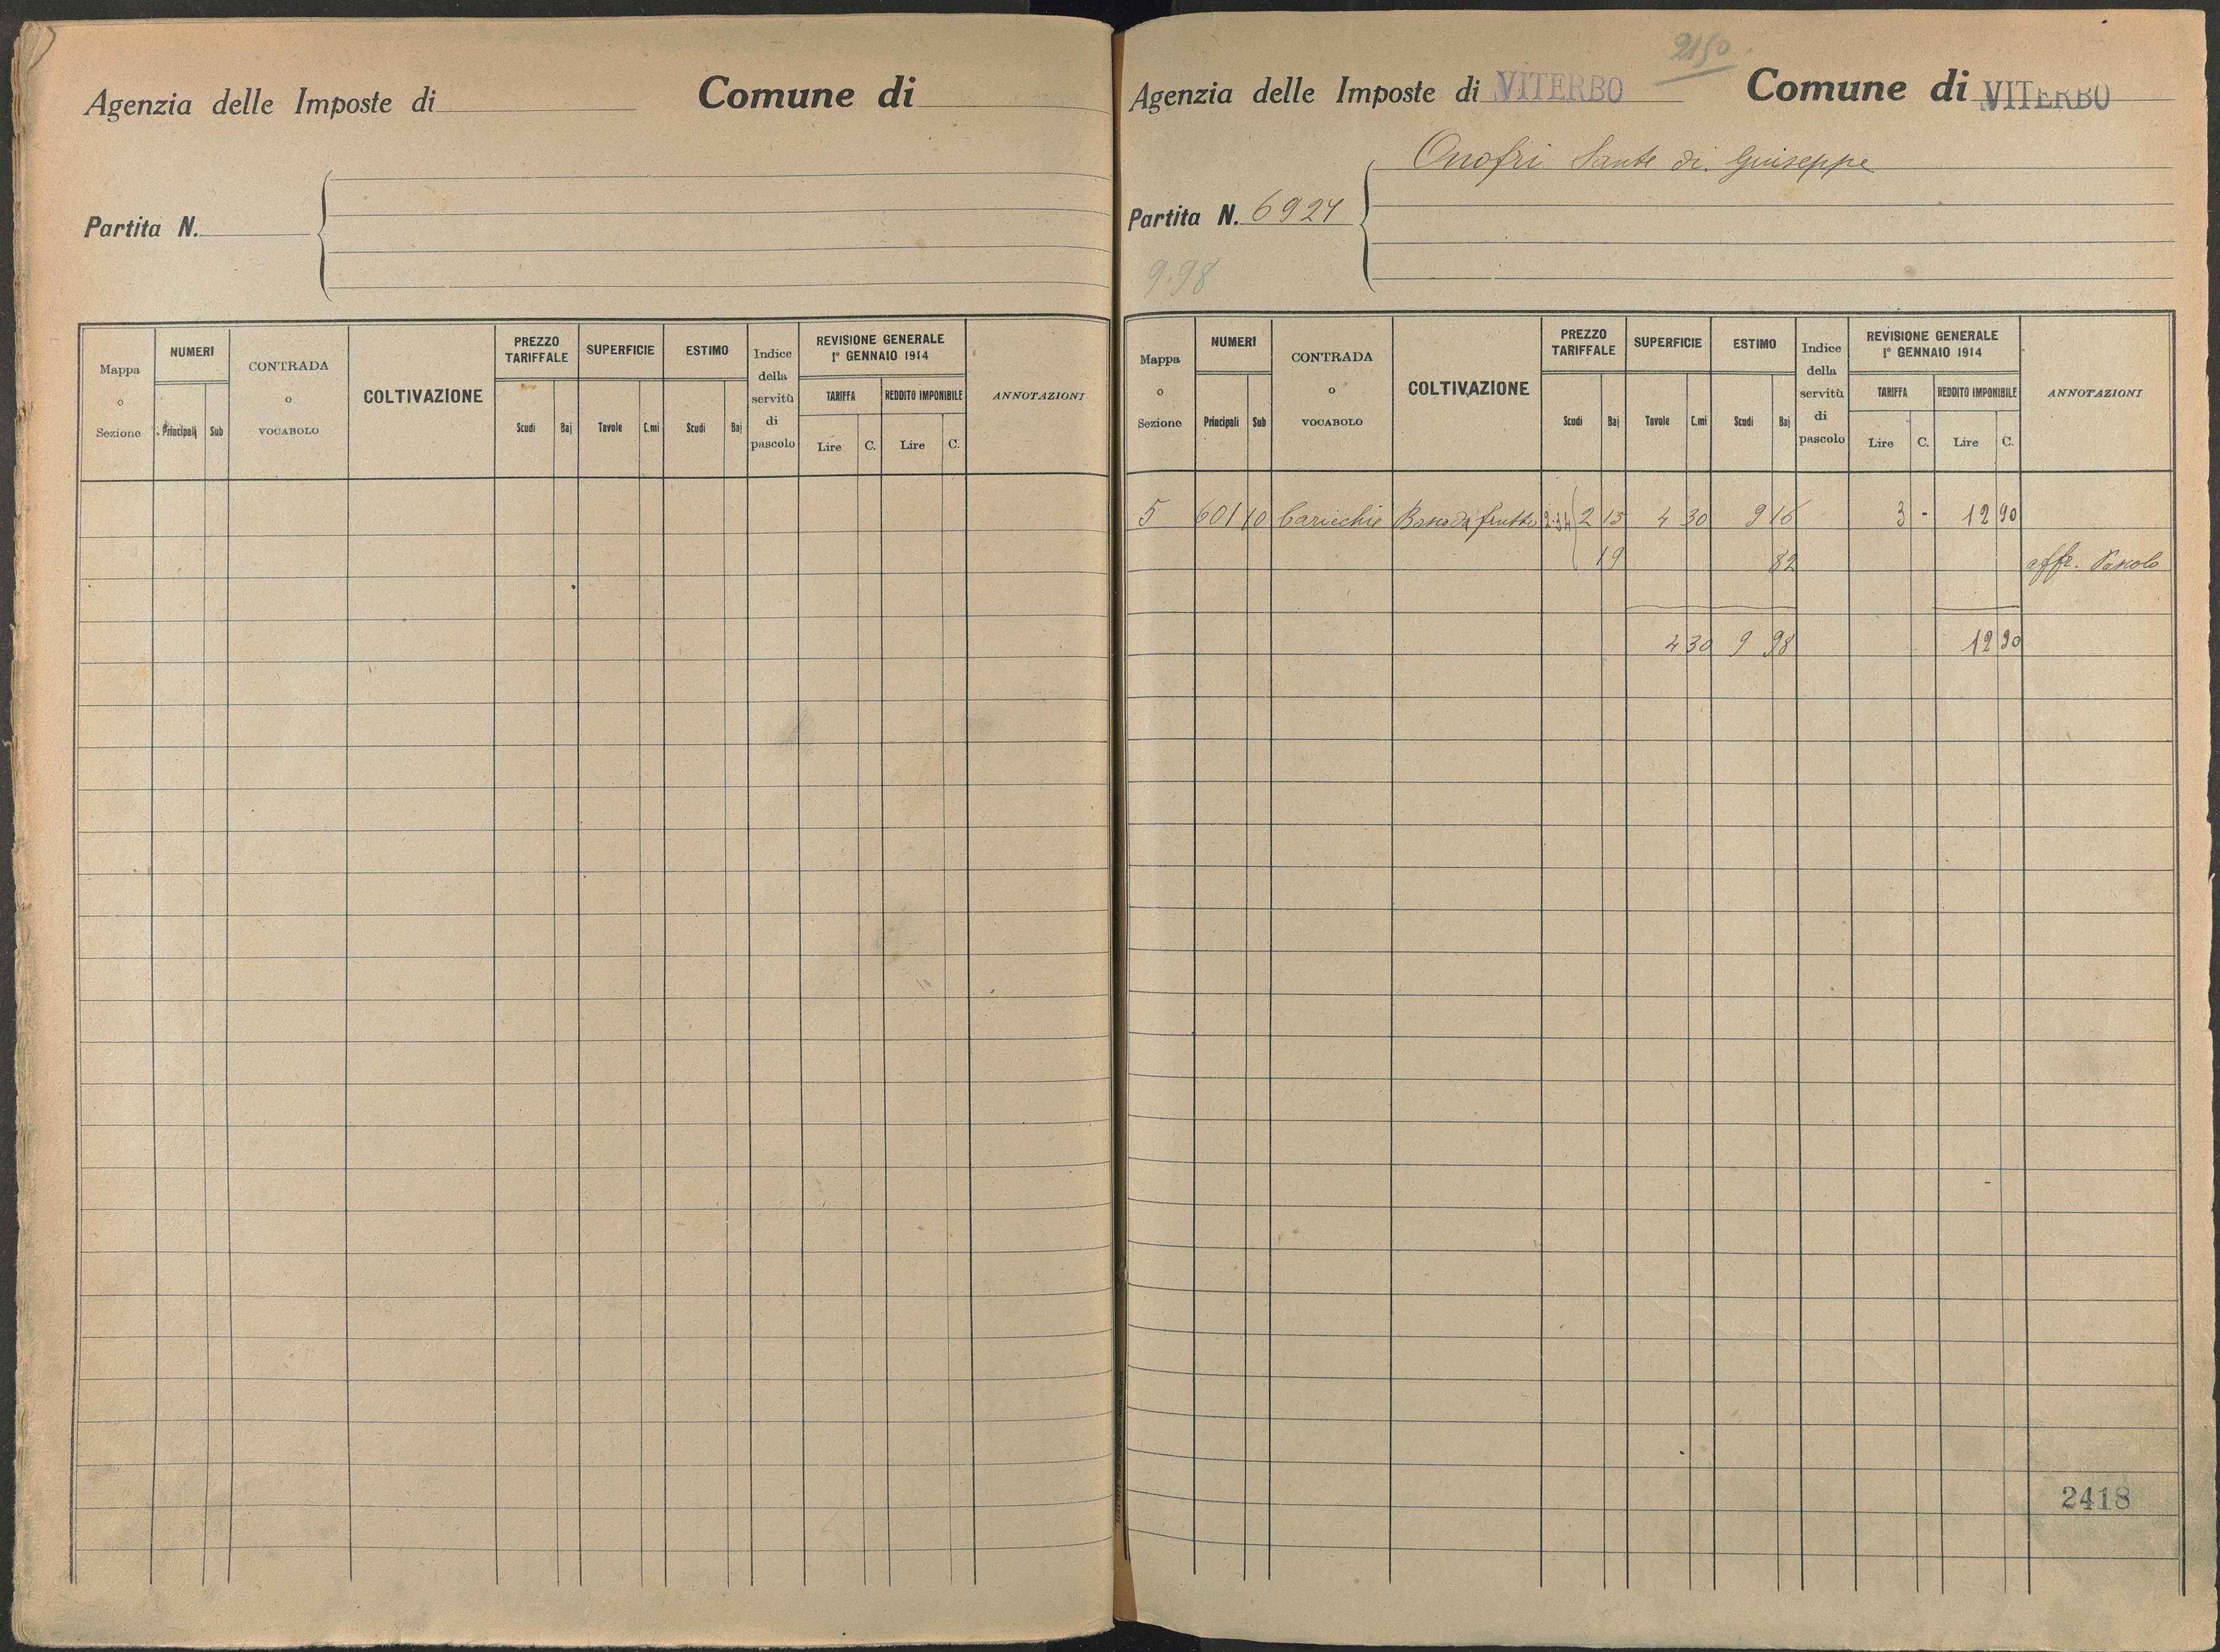 Agenzia delle Imposte di
Comune di
Partita N.
Mappa o Sezione
NUMERI
Principali
Sub
CONTRADA o VOCABOLO
COLTIVAZIONE
PREZZO TARIFFALE
Scudi
Baj
SUPERFICIE
Tavole
C.mi
ESTIMO
Scudi
Baj
Indice della servitù di pascolo
REVISIONE GENERALE
1° GENNAIO 1914
TARIFFA
Lire
C.
REDDITO IMPONIBILE
Lire
C.
ANNOTAZIONI
2150
Agenzia delle Imposte di VITERBO
Comune di VITERBO
Onofri Sante di Giuseppe
Partita N. 6924
9.98
Mappa o Sezione
NUMERI
Principali
Sub
CONTRADA o VOCABOLO
COLTIVAZIONE
PREZZO TARIFFALE
Scudi
Baj
SUPERFICIE
Tavole
C.mi
ESTIMO
Scudi
Baj
Indice della servitù di pascolo
REVISIONE GENERALE
1° GENNAIO 1914
TARIFFA
Lire
C.
REDDITO IMPONIBILE
Lire
C.
ANNOTAZIONI
5 601 10 Caricchie da frutto 2.34 2 15 4 30 9 16 3 - 12 90
19 82 affr. Pascolo
4 30 9 98 12 90
2418